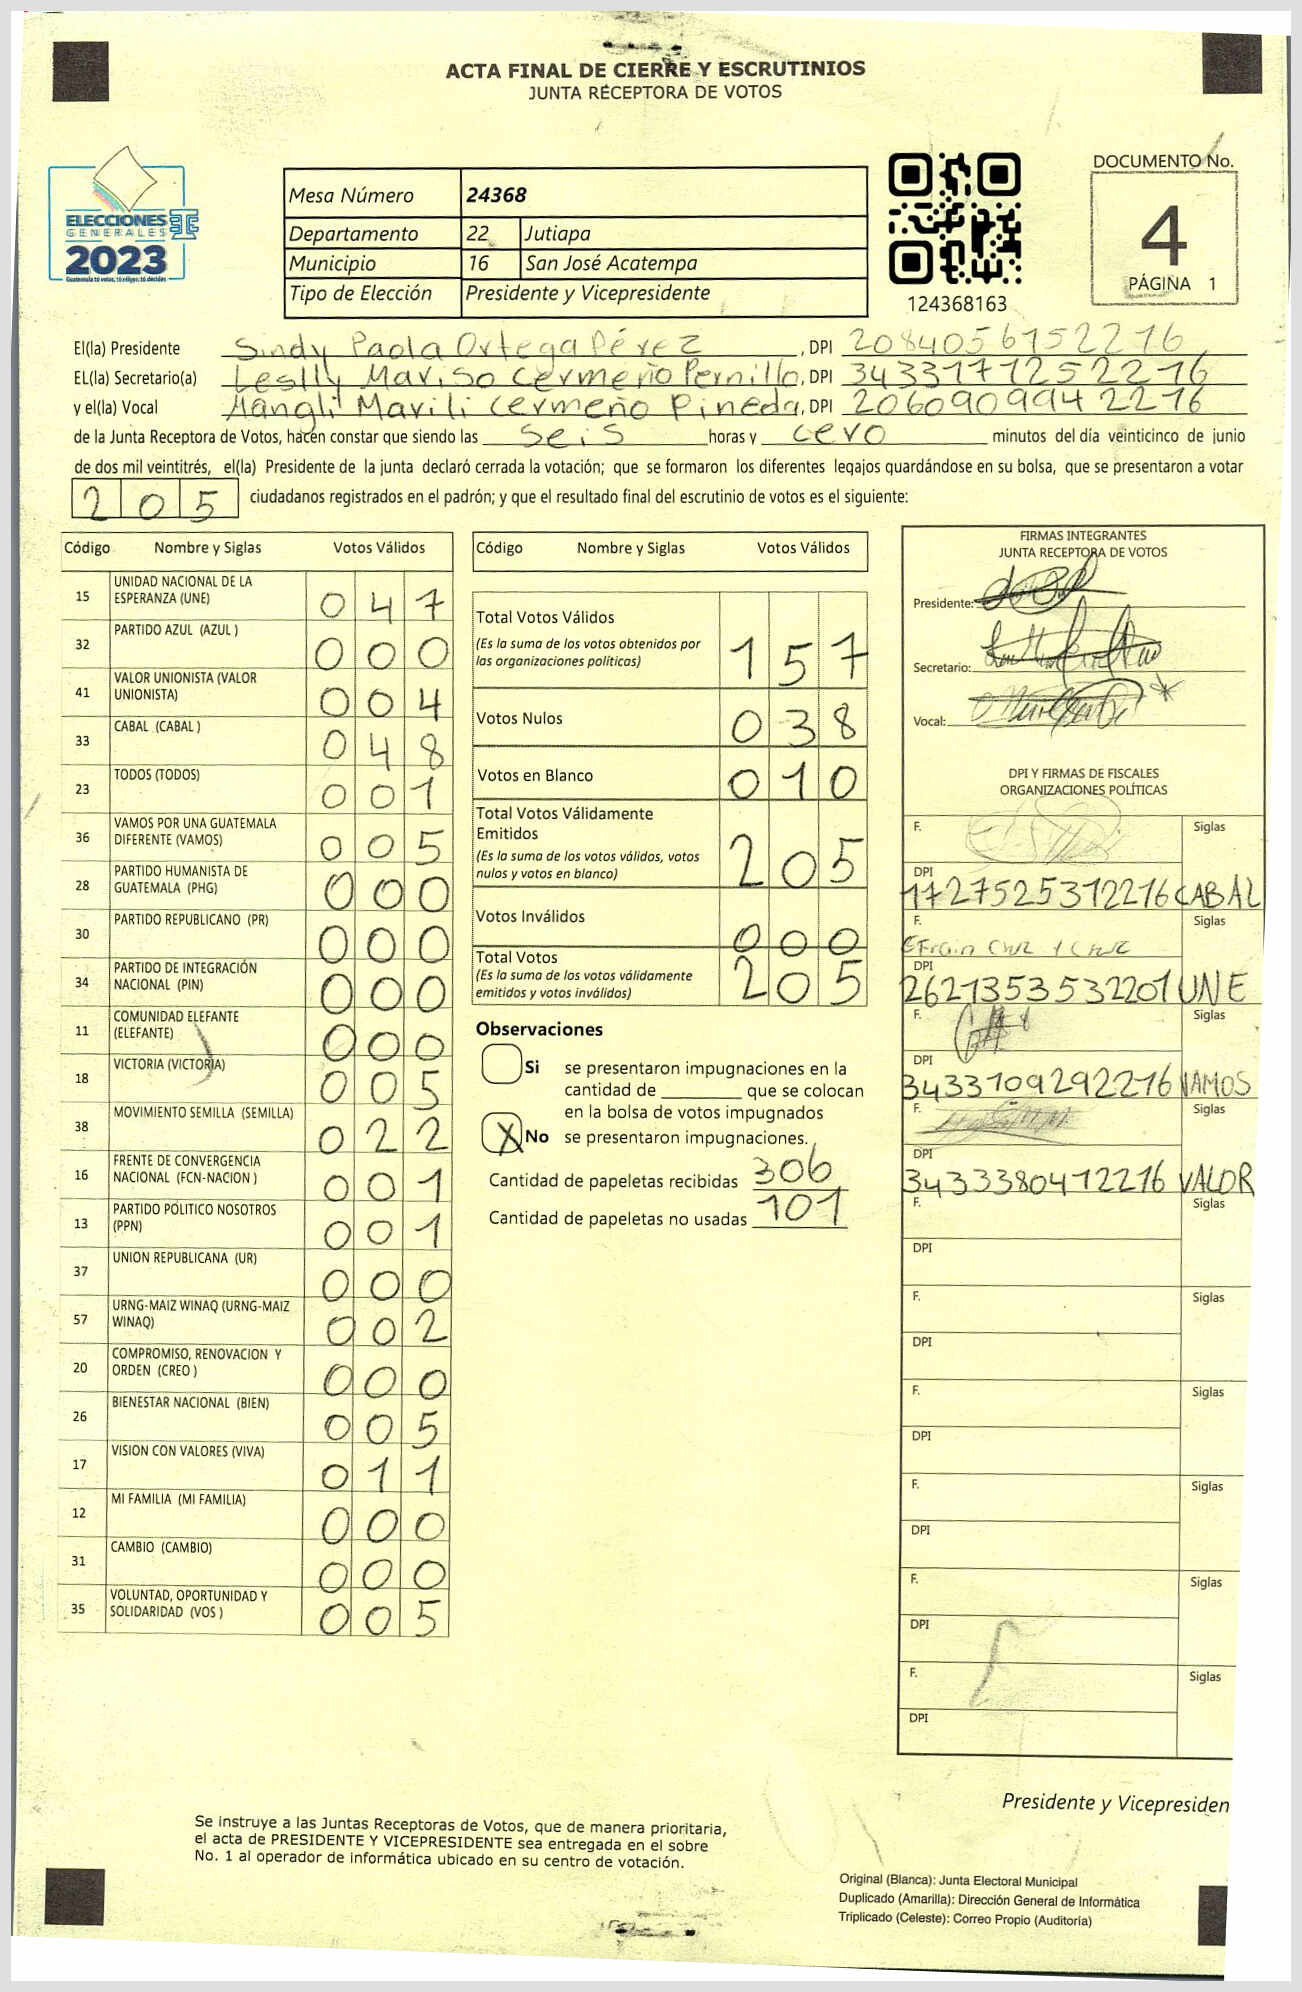 ACTA FINAL DE CIERRE Y ESCRUTINIOS
JUNTA RECEPTORA DE VOTOS
ELECCIONES
GENERALES
2023
Mesa Número 24368
Departamento 22 Jutiapa
Municipio 16 San José Acatempa
Tipo de Elección Presidente y Vicepresidente
124368163
DOCUMENTO No.
4
PÁGINA 1
El(la) Presidente Sindy Paola Ortega Pérez, DPI 2084056152216
EL(la) Secretario(a) Leslly Mariso Cermeño Pernillo, DPI 3433171252216
y el(la) Vocal Hangli Marili Cermeño Pineda, DPI 2060909942216
de la Junta Receptora de Votos, hacen constar que siendo las seis horas y cero minutos del día veinticinco de junio
de dos mil veintitrés, el(la) Presidente de la junta declaró cerrada la votación; que se formaron los diferentes legajos quardándose en su bolsa, que se presentaron a votar
205 ciudadanos registrados en el padrón; y que el resultado final del escrutinio de votos es el siguiente:
Código Nombre y Siglas Votos Válidos
15 UNIDAD NACIONAL DE LA ESPERANZA (UNE) 047
32 PARTIDO AZUL (AZUL ) 000
41 VALOR UNIONISTA (VALOR UNIONISTA) 004
33 CABAL (CABAL ) 048
23 TODOS (TODOS) 001
36 VAMOS POR UNA GUATEMALA DIFERENTE (VAMOS) 005
28 PARTIDO HUMANISTA DE GUATEMALA (PHG) 000
30 PARTIDO REPUBLICANO (PR) 000
34 PARTIDO DE INTEGRACIÓN NACIONAL (PIN) 000
11 COMUNIDAD ELEFANTE (ELEFANTE) 000
18 VICTORIA (VICTORIA) 005
38 MOVIMIENTO SEMILLA (SEMILLA) 022
16 FRENTE DE CONVERGENCIA NACIONAL (FCN-NACION ) 001
13 PARTIDO POLITICO NOSOTROS (PPN) 001
37 UNION REPUBLICANA (UR) 000
57 URNG-MAIZ WINAQ (URNG-MAIZ WINAQ) 002
20 COMPROMISO, RENOVACION Y ORDEN (CREO ) 000
26 BIENESTAR NACIONAL (BIEN) 005
17 VISION CON VALORES (VIVA) 011
12 MI FAMILIA (MI FAMILIA) 000
31 CAMBIO (CAMBIO) 000
35 VOLUNTAD, OPORTUNIDAD Y SOLIDARIDAD (VOS ) 005
Código Nombre y Siglas Votos Válidos
Total Votos Válidos
(Es la suma de los votos obtenidos por
las organizaciones políticas) 157
Votos Nulos 038
Votos en Blanco 010
Total Votos Válidamente
Emitidos
(Es la suma de los votos válidos, votos
nulos y votos en blanco) 205
Votos Inválidos 000
Total Votos
(Es la suma de los votos válidamente
emitidos y votos inválidos) 205
Observaciones
Si se presentaron impugnaciones en la
cantidad de ________ que se colocan
en la bolsa de votos impugnados
X No se presentaron impugnaciones.
Cantidad de papeletas recibidas 306
Cantidad de papeletas no usadas 101
FIRMAS INTEGRANTES
JUNTA RECEPTORA DE VOTOS
Presidente:
Secretario:
Vocal:
DPI Y FIRMAS DE FISCALES
ORGANIZACIONES POLÍTICAS
F. Siglas
DPI 1727525312216 CABAL
F. Efrain Cruz y Cruz Siglas
DPI 2621353532201 UNE
F. Siglas
DPI 3433109292216 VAMOS
F. Siglas
DPI 3433380412216 VALOR
F. Siglas
DPI
F. Siglas
DPI
F. Siglas
DPI
F. Siglas
DPI
F. Siglas
DPI
F. Siglas
DPI
Presidente y Vicepresiden
Se instruye a las Juntas Receptoras de Votos, que de manera prioritaria,
el acta de PRESIDENTE Y VICEPRESIDENTE sea entregada en el sobre
No. 1 al operador de informática ubicado en su centro de votación.
Original (Blanca): Junta Electoral Municipal
Duplicado (Amarilla): Dirección General de Informática
Triplicado (Celeste): Correo Propio (Auditoría)